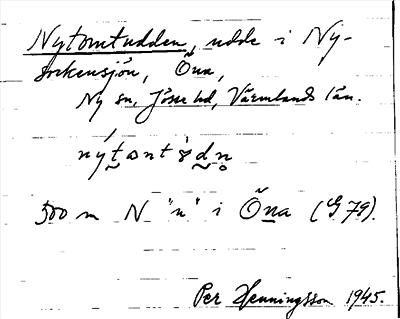 Nytomtudden, udde i Ny-
sockensjön, Õna,
Ny sn, Jösse hd, Värmlands län.
500 m N "n" i Õna (G 79).
Per Henningsson 1945.